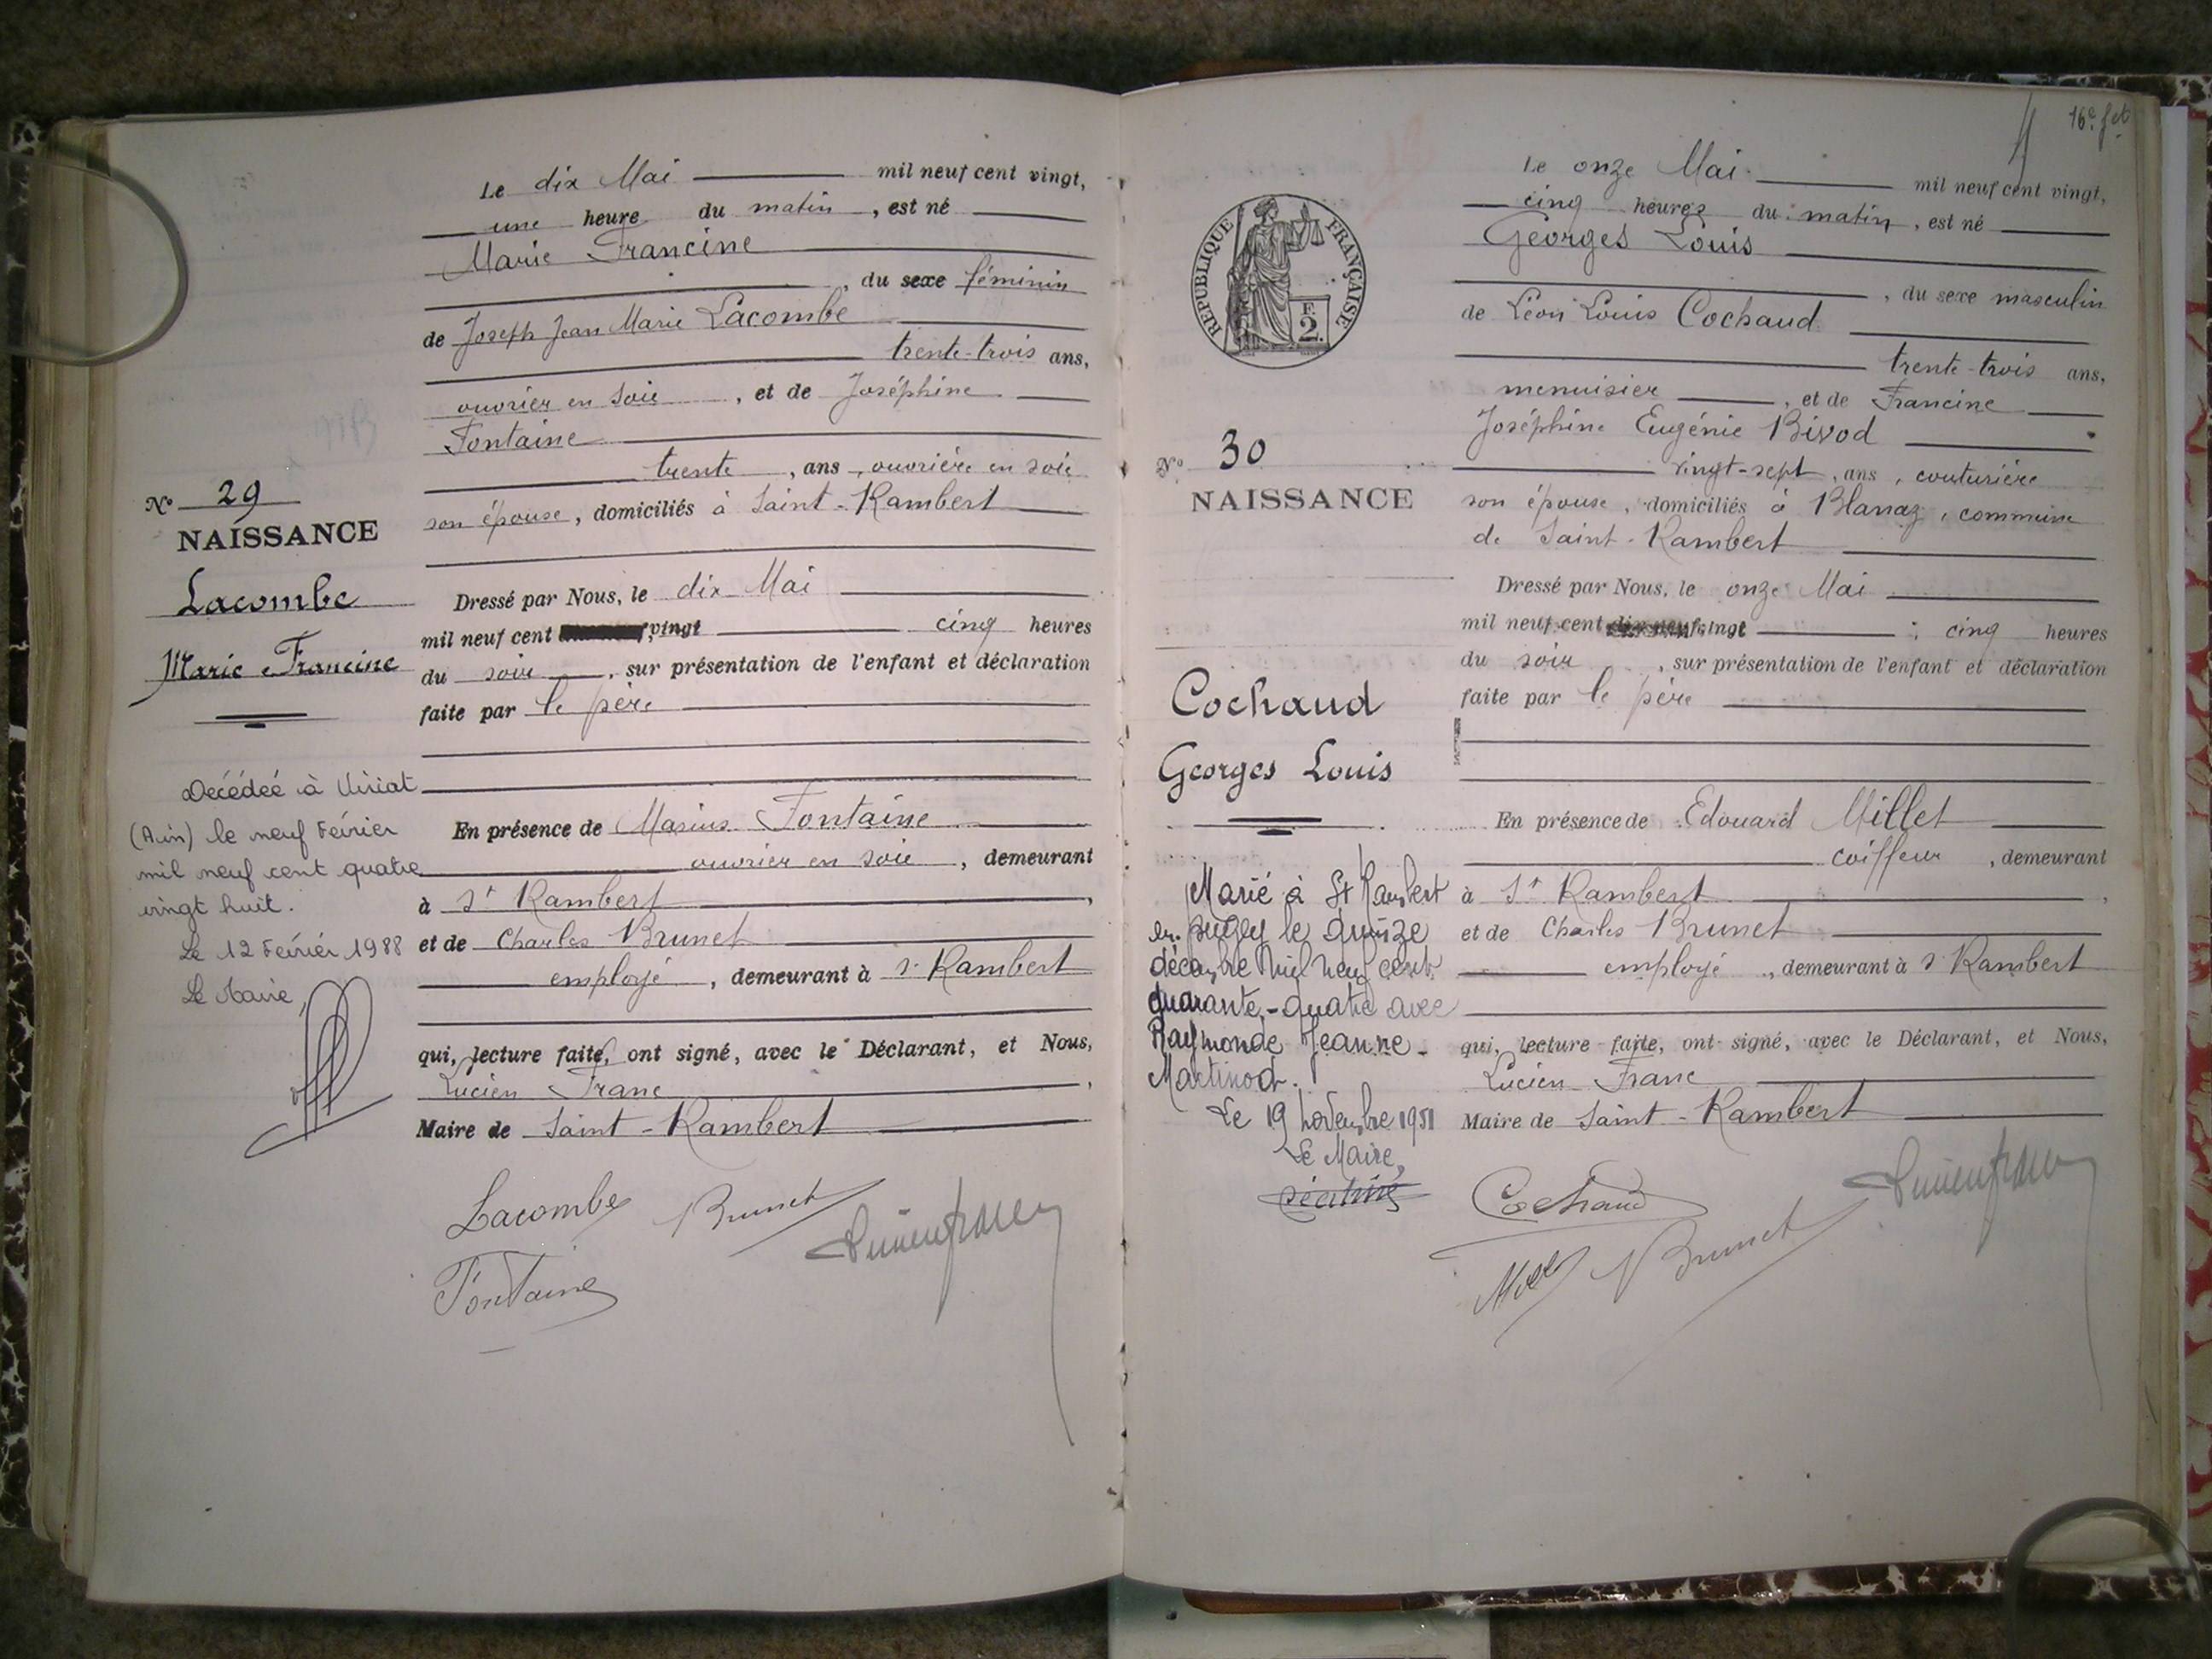 Le dix Mai mil neuf cent vingt,
une heure du matin, est né
Marie Francine
, du sexe féminin
de Joseph Jean Marie Lacombe
trente-trois ans,
ouvrier en soie, et de Joséphine
Fontaine
trente, ans, ouvrière en soie
son épouse, domiciliés à Saint-Rambert
Nº 29
NAISSANCE
Lacombe
Marie Francine
Dressé par Nous, le dix Mai
mil neuf cent vingt cinq heures
du soir, sur présentation de l'enfant et déclaration
faite par le père
Décédée à Viriat
(Ain) le neuf Février
mil neuf cent quatre
vingt huit.
Le 12 Février 1988
Le Maire,
En présence de Marius Fontaine
ouvrier en soie, demeurant
à St Rambert,
et de Charles Brunet
employé, demeurant à St Rambert
qui, lecture faite, ont signé, avec le Déclarant, et Nous,
Lucien Franc,
Maire de Saint-Rambert
Lacombe Brunet
Fontaine
16e fet
Le onze Mai mil neuf cent vingt,
cinq heures du matin, est né
Georges Louis
, du sexe masculin
de Léon Louis Cochaud
trente-trois ans,
menuisier, et de Francine
Joséphine Eugénie Bivod
vingt-sept, ans, couturière
son épouse, domiciliés à Blanaz, commune
de Saint-Rambert
REPUBLIQUE FRANÇAISE
F.
2.
Nº 30
NAISSANCE
Cochaud
Georges Louis
Dressé par Nous, le onze Mai
mil neuf cent vingt, cinq heures
du soir, sur présentation de l'enfant et déclaration
faite par le père
Marié à St Rambert
en Bugey le quinze
décembre mil neuf cent
quarante-quatre avec
Raymonde Jeanne
Martinod.
Le 19 novembre 1951
Le Maire,
En présence de Edouard Millet
coiffeur, demeurant
à St Rambert,
et de Charles Brunet
employé, demeurant à St Rambert
qui, lecture faite, ont signé, avec le Déclarant, et Nous,
Lucien Franc
Maire de Saint-Rambert
Cochaud
Brunet